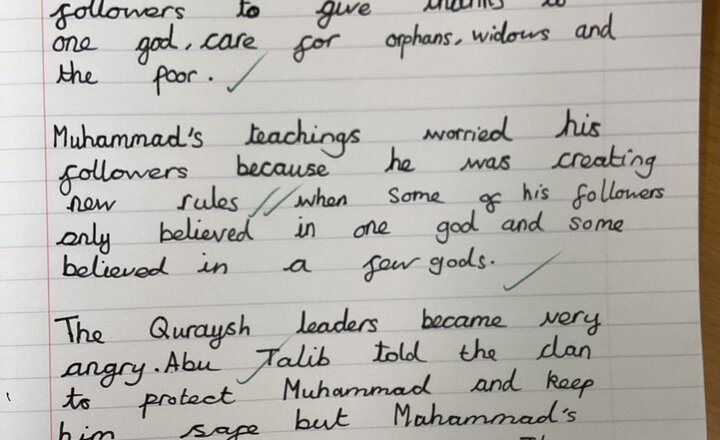 followers to give thanks to
one god, care for orphans, widows and
the poor.
Muhammad's teachings worried his
followers because he was creating
new rules // when some of his followers
only believed in one god and some
believed in a few gods.
The Quraysh leaders became very
angry. Abu Talib told the clan
to protect Muhammad and keep
him safe but Mahammad's